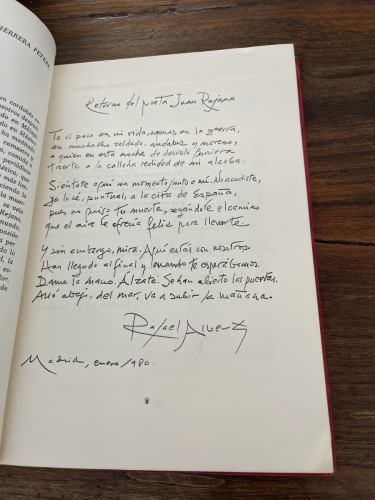 HERRERA PETERE
Retorno del poeta Juan Rejano
Te vi poco en mi vida, apenas en la guerra,
en muchacho soldado, andaluz y moreno,
a quien en esta noche de desvelo quisiera
traerte a la callada realidad de mi alcoba.
Siéntate aquí un momento junto a mí. No acudiste,
ya lo sé, puntual, a la cita de España,
pues quiso tu muerte, segándote el camino
que el aire te ofrecía feliz para llevarte.
Y sin embargo, mira. Aquí estás con nosotros.
Has llegado al final y cuando te esperábamos.
Dame la mano. Álzate. Se han abierto las puertas.
Allá abajo, del mar, va a subir la mañana.
Rafael Alberti
Madrid, enero/980.